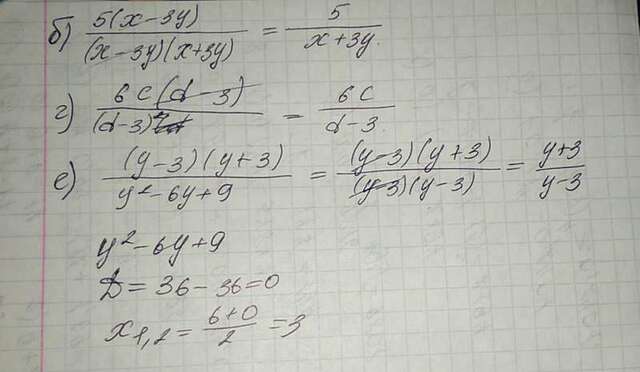 б) 5(x-3y)/(x-3y)(x+3y) = 5/x+3y.
г) 6c(d-3)/(d-3)² = 6c/d-3.
е) (y-3)(y+3)/y²-6y+9 = (y-3)(y+3)/(y-3)(y-3) = y+3/y-3
y²-6y+9
D = 36-36=0
x1,2 = 6+0/2 = 3